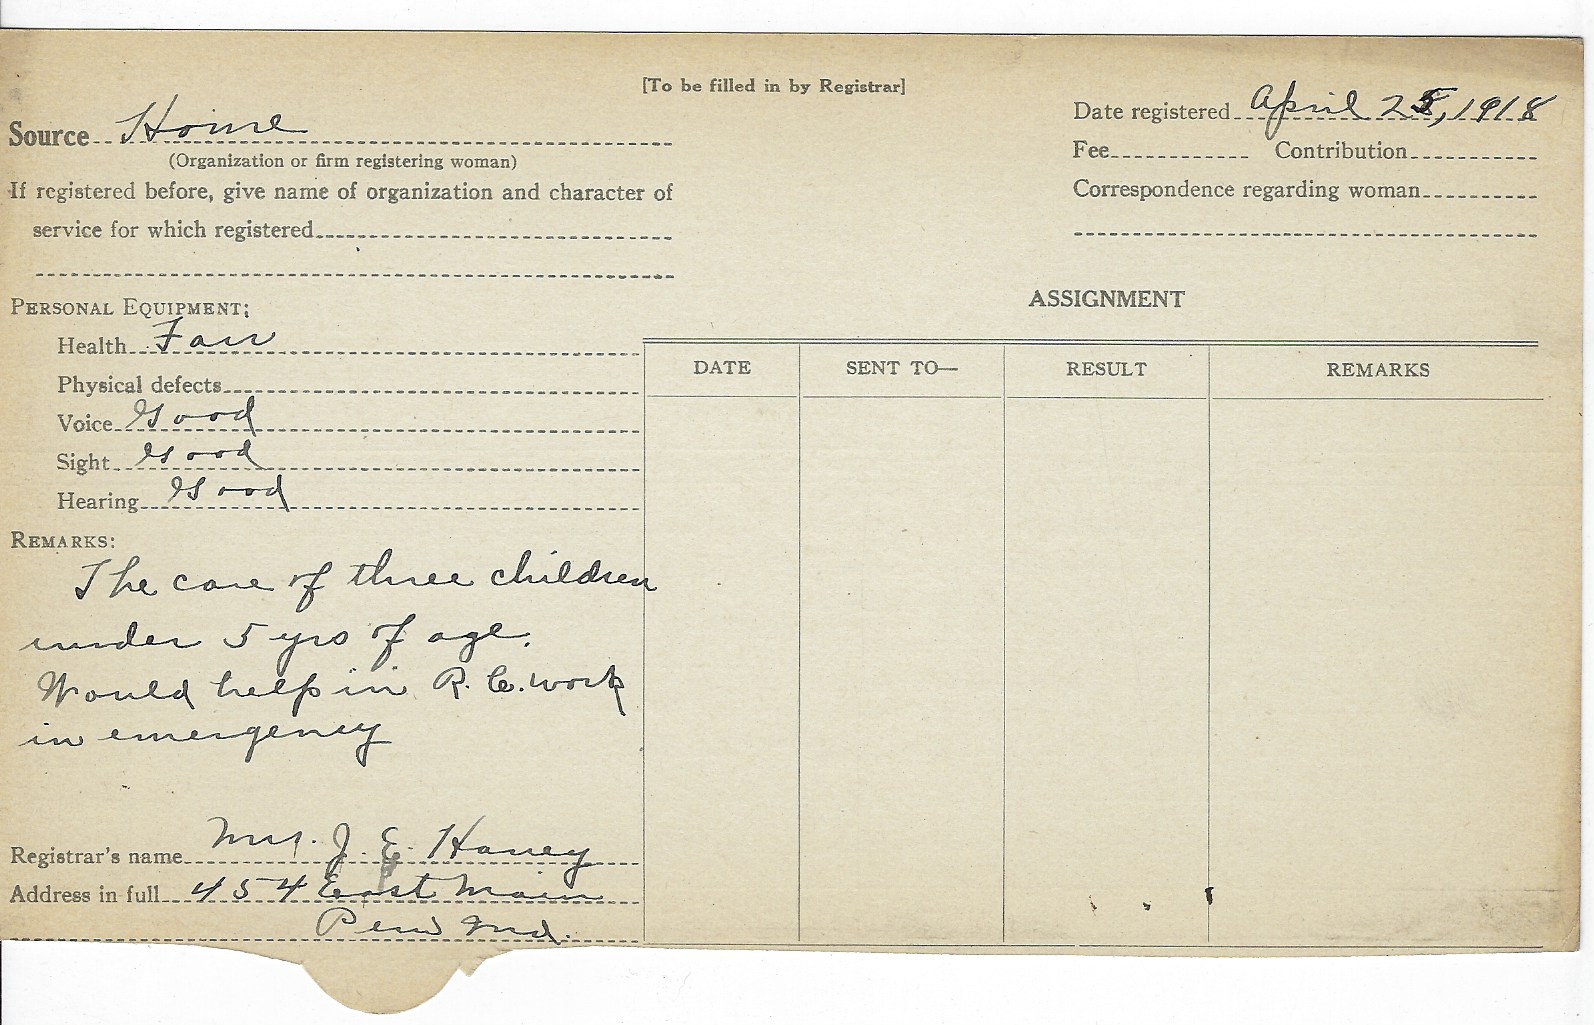 [To be filled in by Registrar]
Source Home
(Organization or firm registering woman)
If registered before, give name of organization and character of
service for which registered
Date registered April 25, 1918
Fee Contribution
Correspondence regarding woman
PERSONAL EQUIPMENT:
Health Fair
Physical defects
Voice Good
Sight Good
Hearing Good
REMARKS:
The care of three children
under 5 yrs of age.
Would help in R. C. work
in emergency
Registrar's name Mrs. J. E. Haney
Address in full 454 East Main
Peru Ind.
ASSIGNMENT
DATE SENT TO— RESULT REMARKS